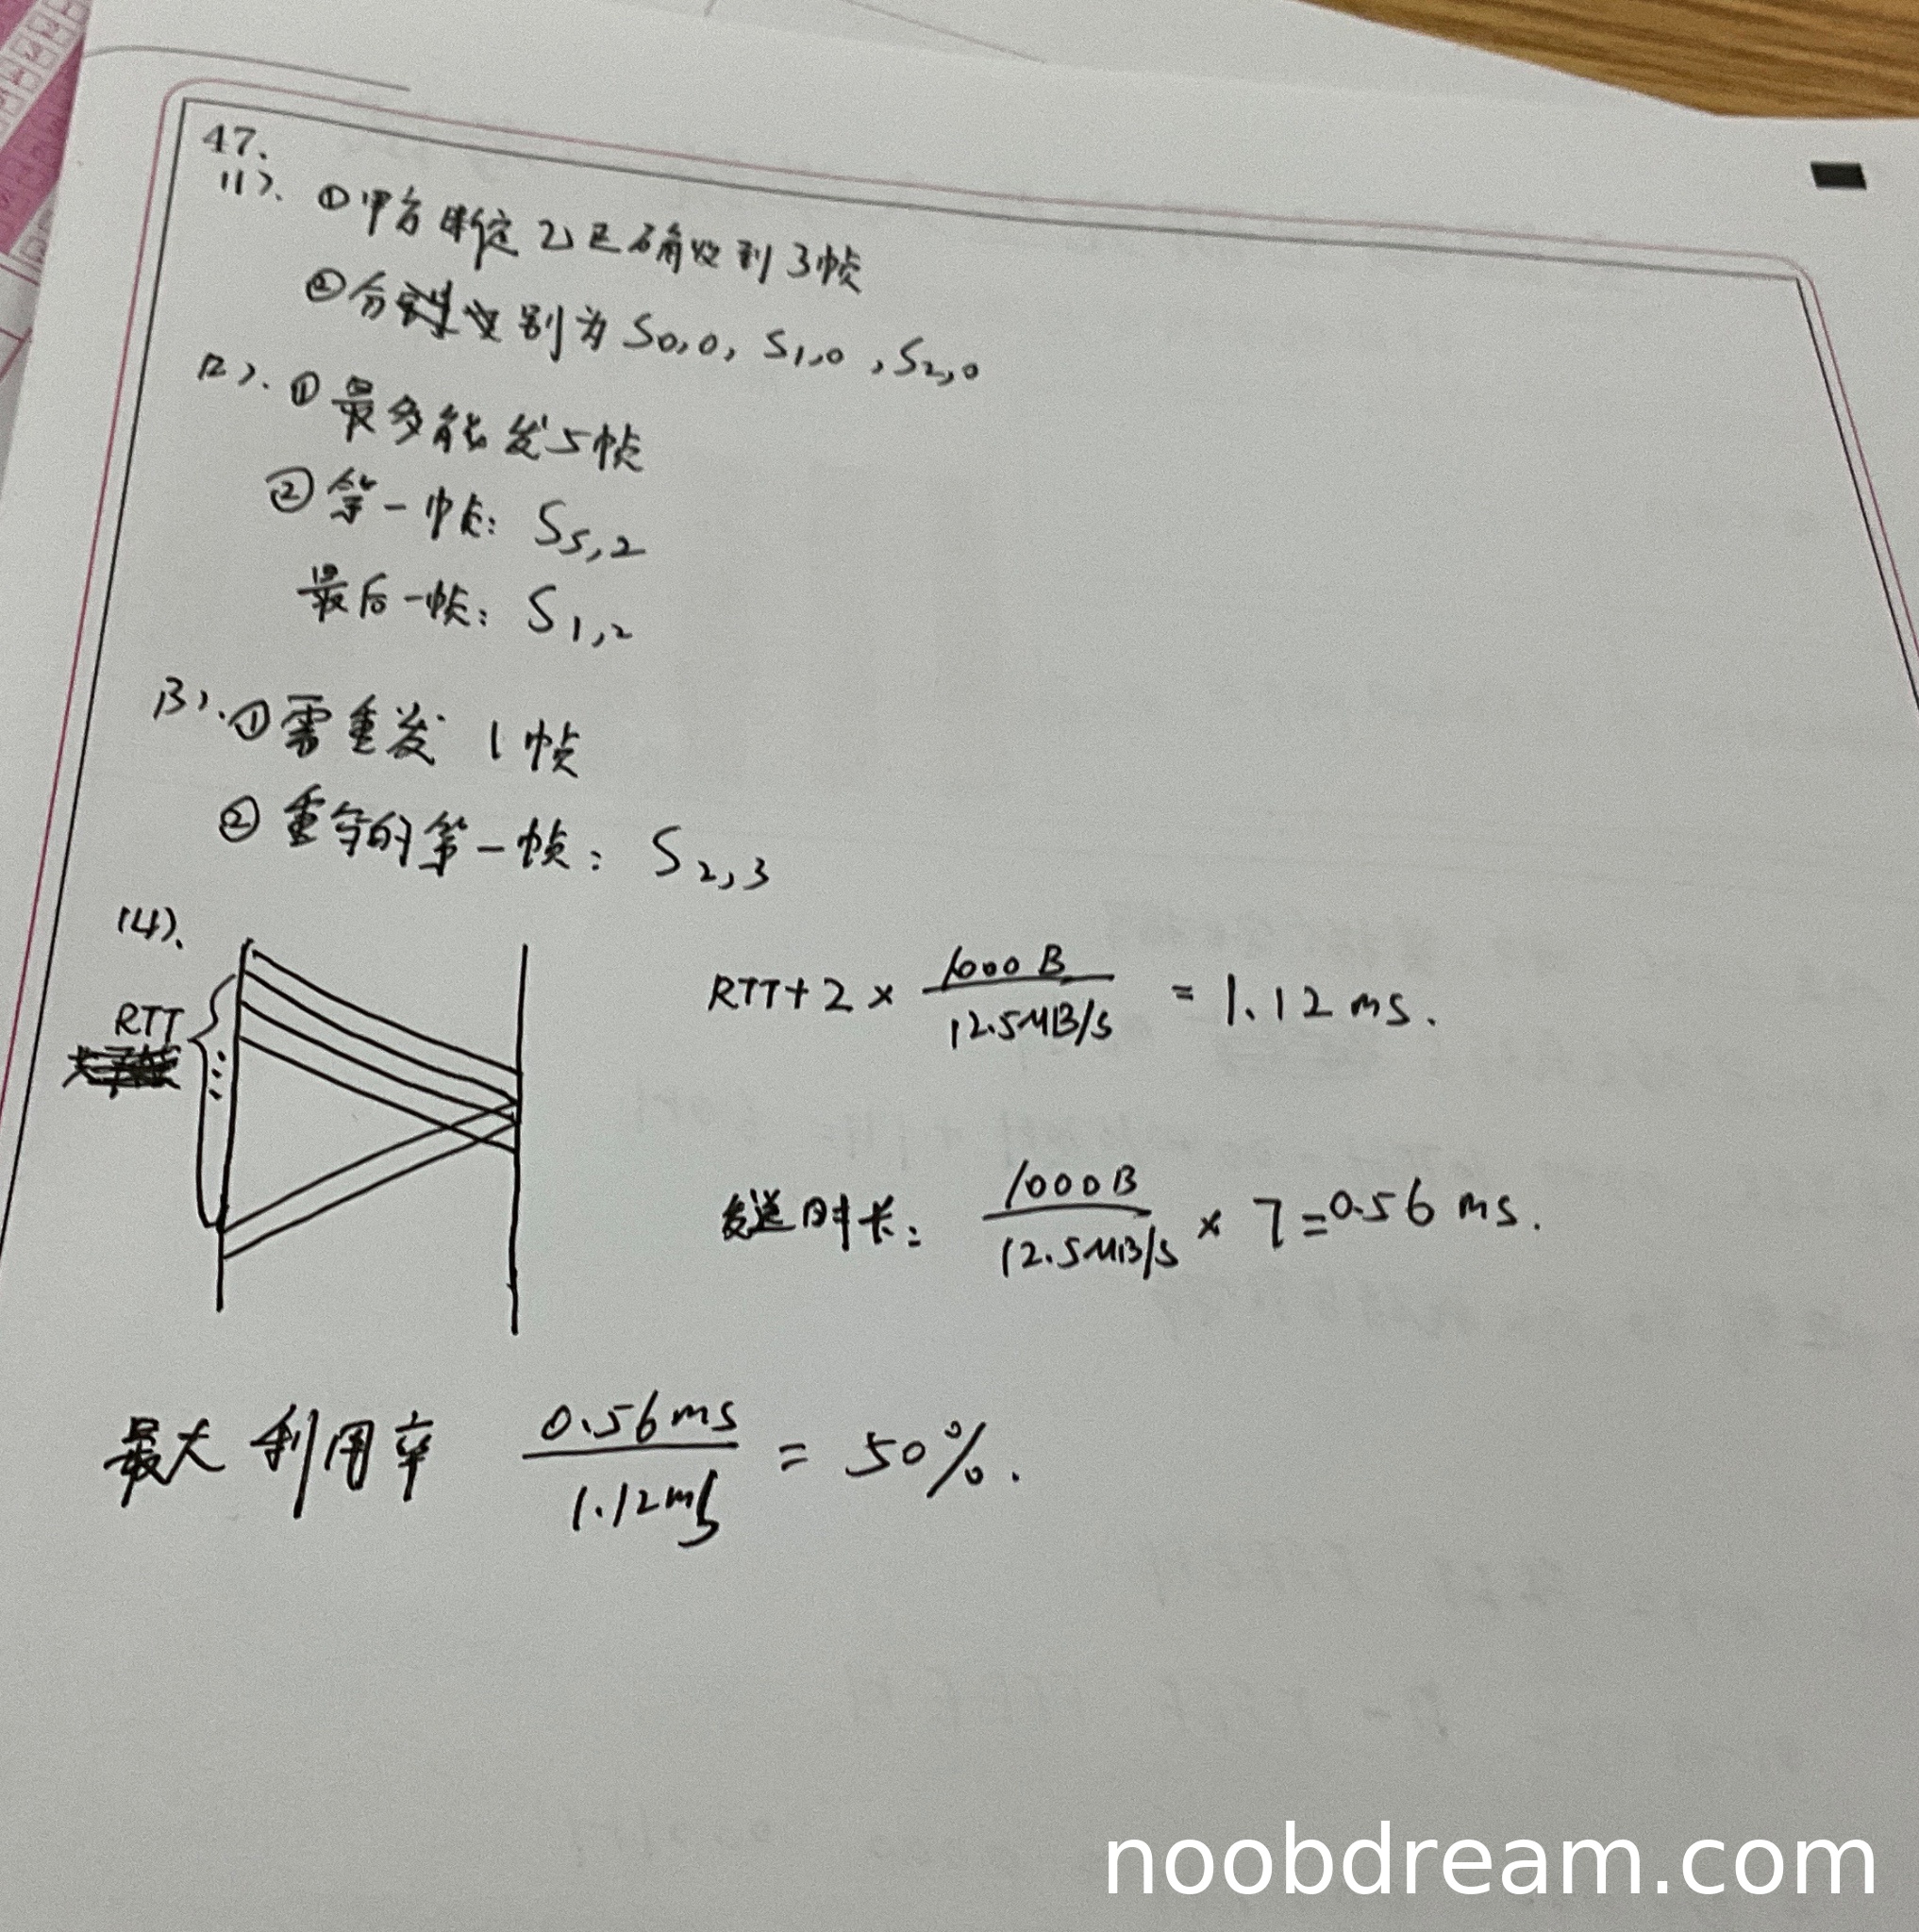 47.
(1). ①甲方断定乙正确收到3帧
②分别为 S0,0, S1,0, S2,0
(2). ①最多能发5帧
②第一帧: S5,2
最后一帧: S1,2
(3). ①需重发 1帧
②重传的第一帧: S2,3
(4).
RTT
RTT + 2 × 1000B / 12.5MB/s = 1.12 ms.
发送时长: 1000B / 12.5MB/s × 7 = 0.56 ms.
最大利用率 0.56ms / 1.12ms = 50%.
noobdream.com